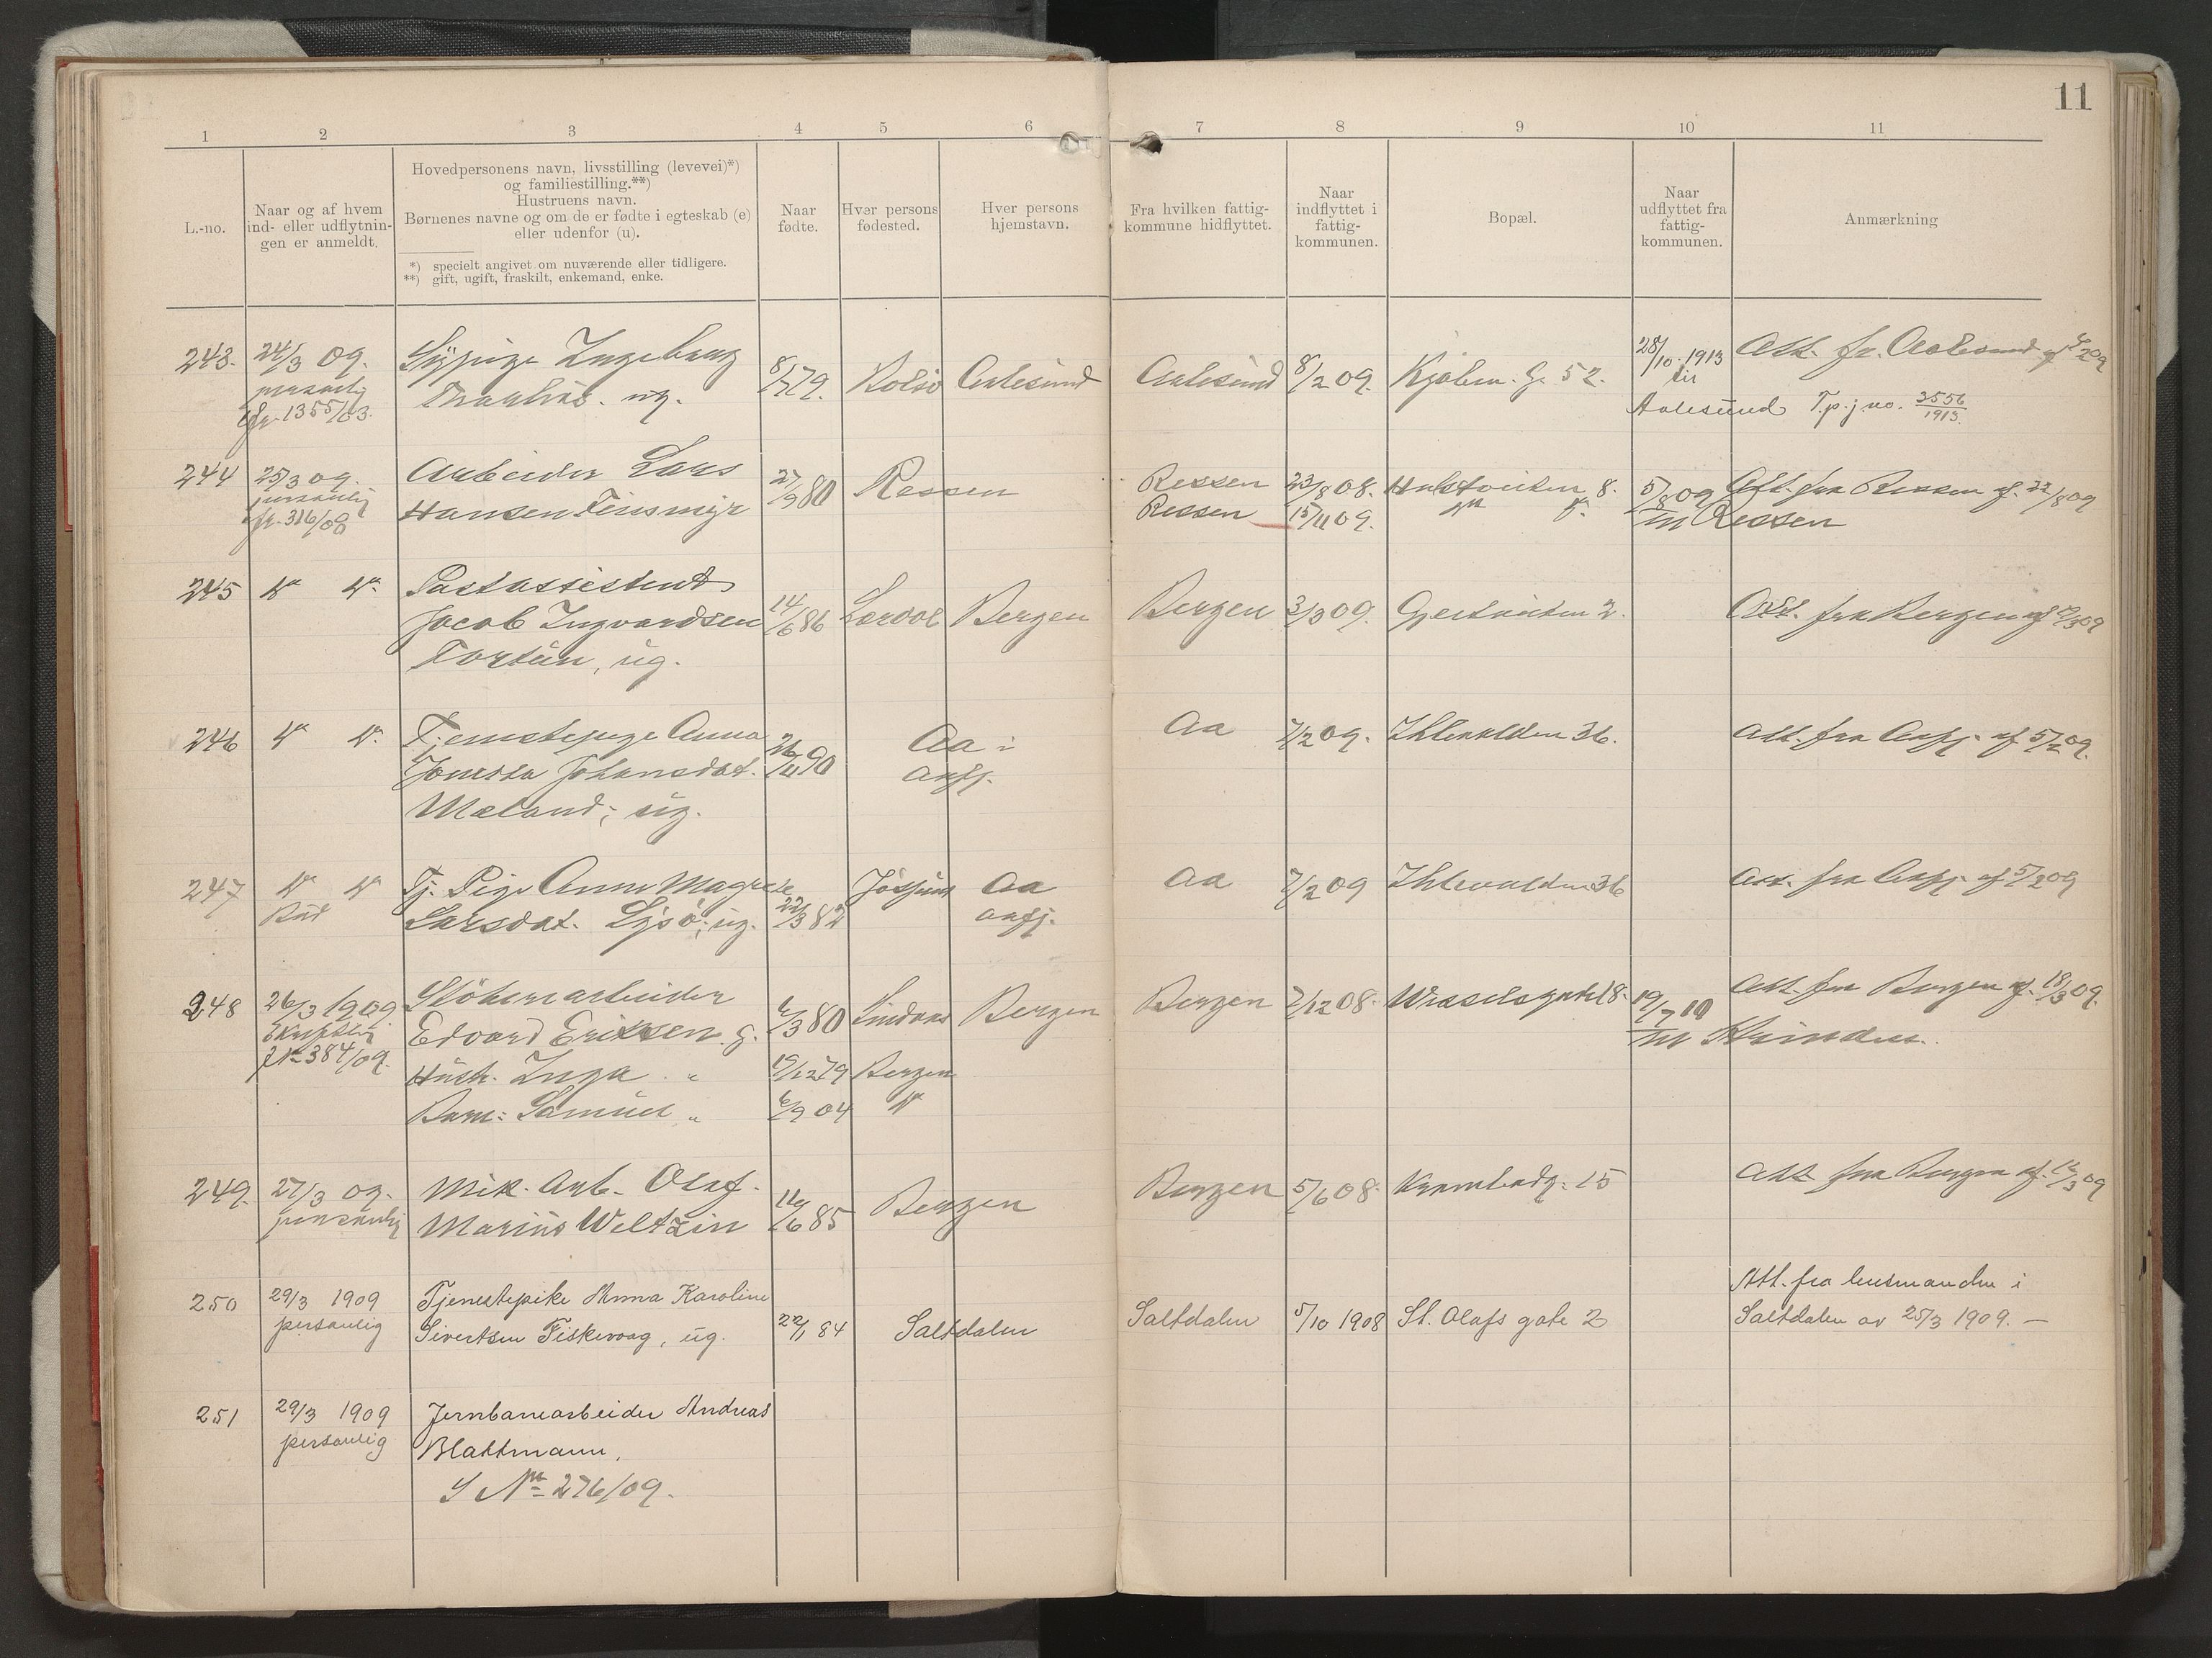 11
1 2 3 4 5 6 7 8 9 10 11
L.-no.
Naar og af hvem
ind- eller udflytnin-
gen er anmeldt.
Hovedpersonens navn, livsstilling (levevei)*)
og familiestilling.**)
Hustruens navn.
Børnenes navne og om de er fødte i egteskab (e)
eller udenfor (u).
*) specielt angivet om nuværende eller tidligere.
**) gift, ugift, fraskilt, enkemand, enke.
Naar
fødte.
Hver persons
fødested.
Hver persons
hjemstavn.
Fra hvilken fattig-
kommune hidflyttet.
Naar
indflyttet i
fattig-
kommunen.
Bopæl.
Naar
udflyttet fra
fattig-
kommunen.
Anmærkning
243. 24/3 09. Sypige Ingeborg Aalesund Aalesund 8/2 09. Kjøbm. G. 52. 28/10 1913 Att. fr. Aalesund af
personlig
1355/03. ug. til
Aalesund T.p.j.no. 3556/1913
244 25/3 09. Arbeider Lars 27/9 80 Rissen Rissen 23/8 08. 8. 5/8 09 Att. fra Rissen af 22/8 09
personlig
fr. 316/08 Hansen Rissen 15/11 09. til Rissen
245 Do Do Postassistent
Jacob Ingvardsen 14/6 86 Lærdal Bergen Bergen 3/3 09. 2. Att. fra Bergen af
Fortun, ug.
246 Do Do. Tjenestepige Anna 26/11 90 Aa i Aa 7/2 09. Ihlevolden 36. Att. fra Aafj. af 5/2 09.
Johansdat. Aafj.
Mæland; ug.
247 Do Do Tj. Pige Anna Magrete Jøssund Aa Aa 7/2 09 Ihlevolden 36 Att. fra Aafj. af 5/2 09
Bud Larsdat. Lysø; ug. 22/3 82 Aafj.
248 26/3 1909. Støberiarbeider Bergen Bergen 7/12 08. Wesselsgate 18. 19/7 10 Att. fra Bergen af 18/3 09.
Skriftlig Edvard Eriksen. g. 6/3 80 Lindaas til Strinden.
J No 384/09. Hustr. Inga „ 19/12 79 Bergen
Barn: Samuel „ 6/9 04 Do
249. 27/3 09. Mek. Arb. Olaf 16/6 85 Bergen Bergen 5/6 08. Krambodg. 15 Att fra Bergen af 09
personlig Marius Weltzin
250 29/3 1909 Tjenestepike Anna Karoline Att. fra lensmanden i
personlig Sivertsen Fiskevaag, ug. 22/1 84 Saltdalen Saltdalen 5/10 1908 St. Olafs gate 2 Saltdalen av 25/3 1909. —
251 29/3 1909 Jernbanearbeider Andreas
personlig Blattmann.
S No 276/09.